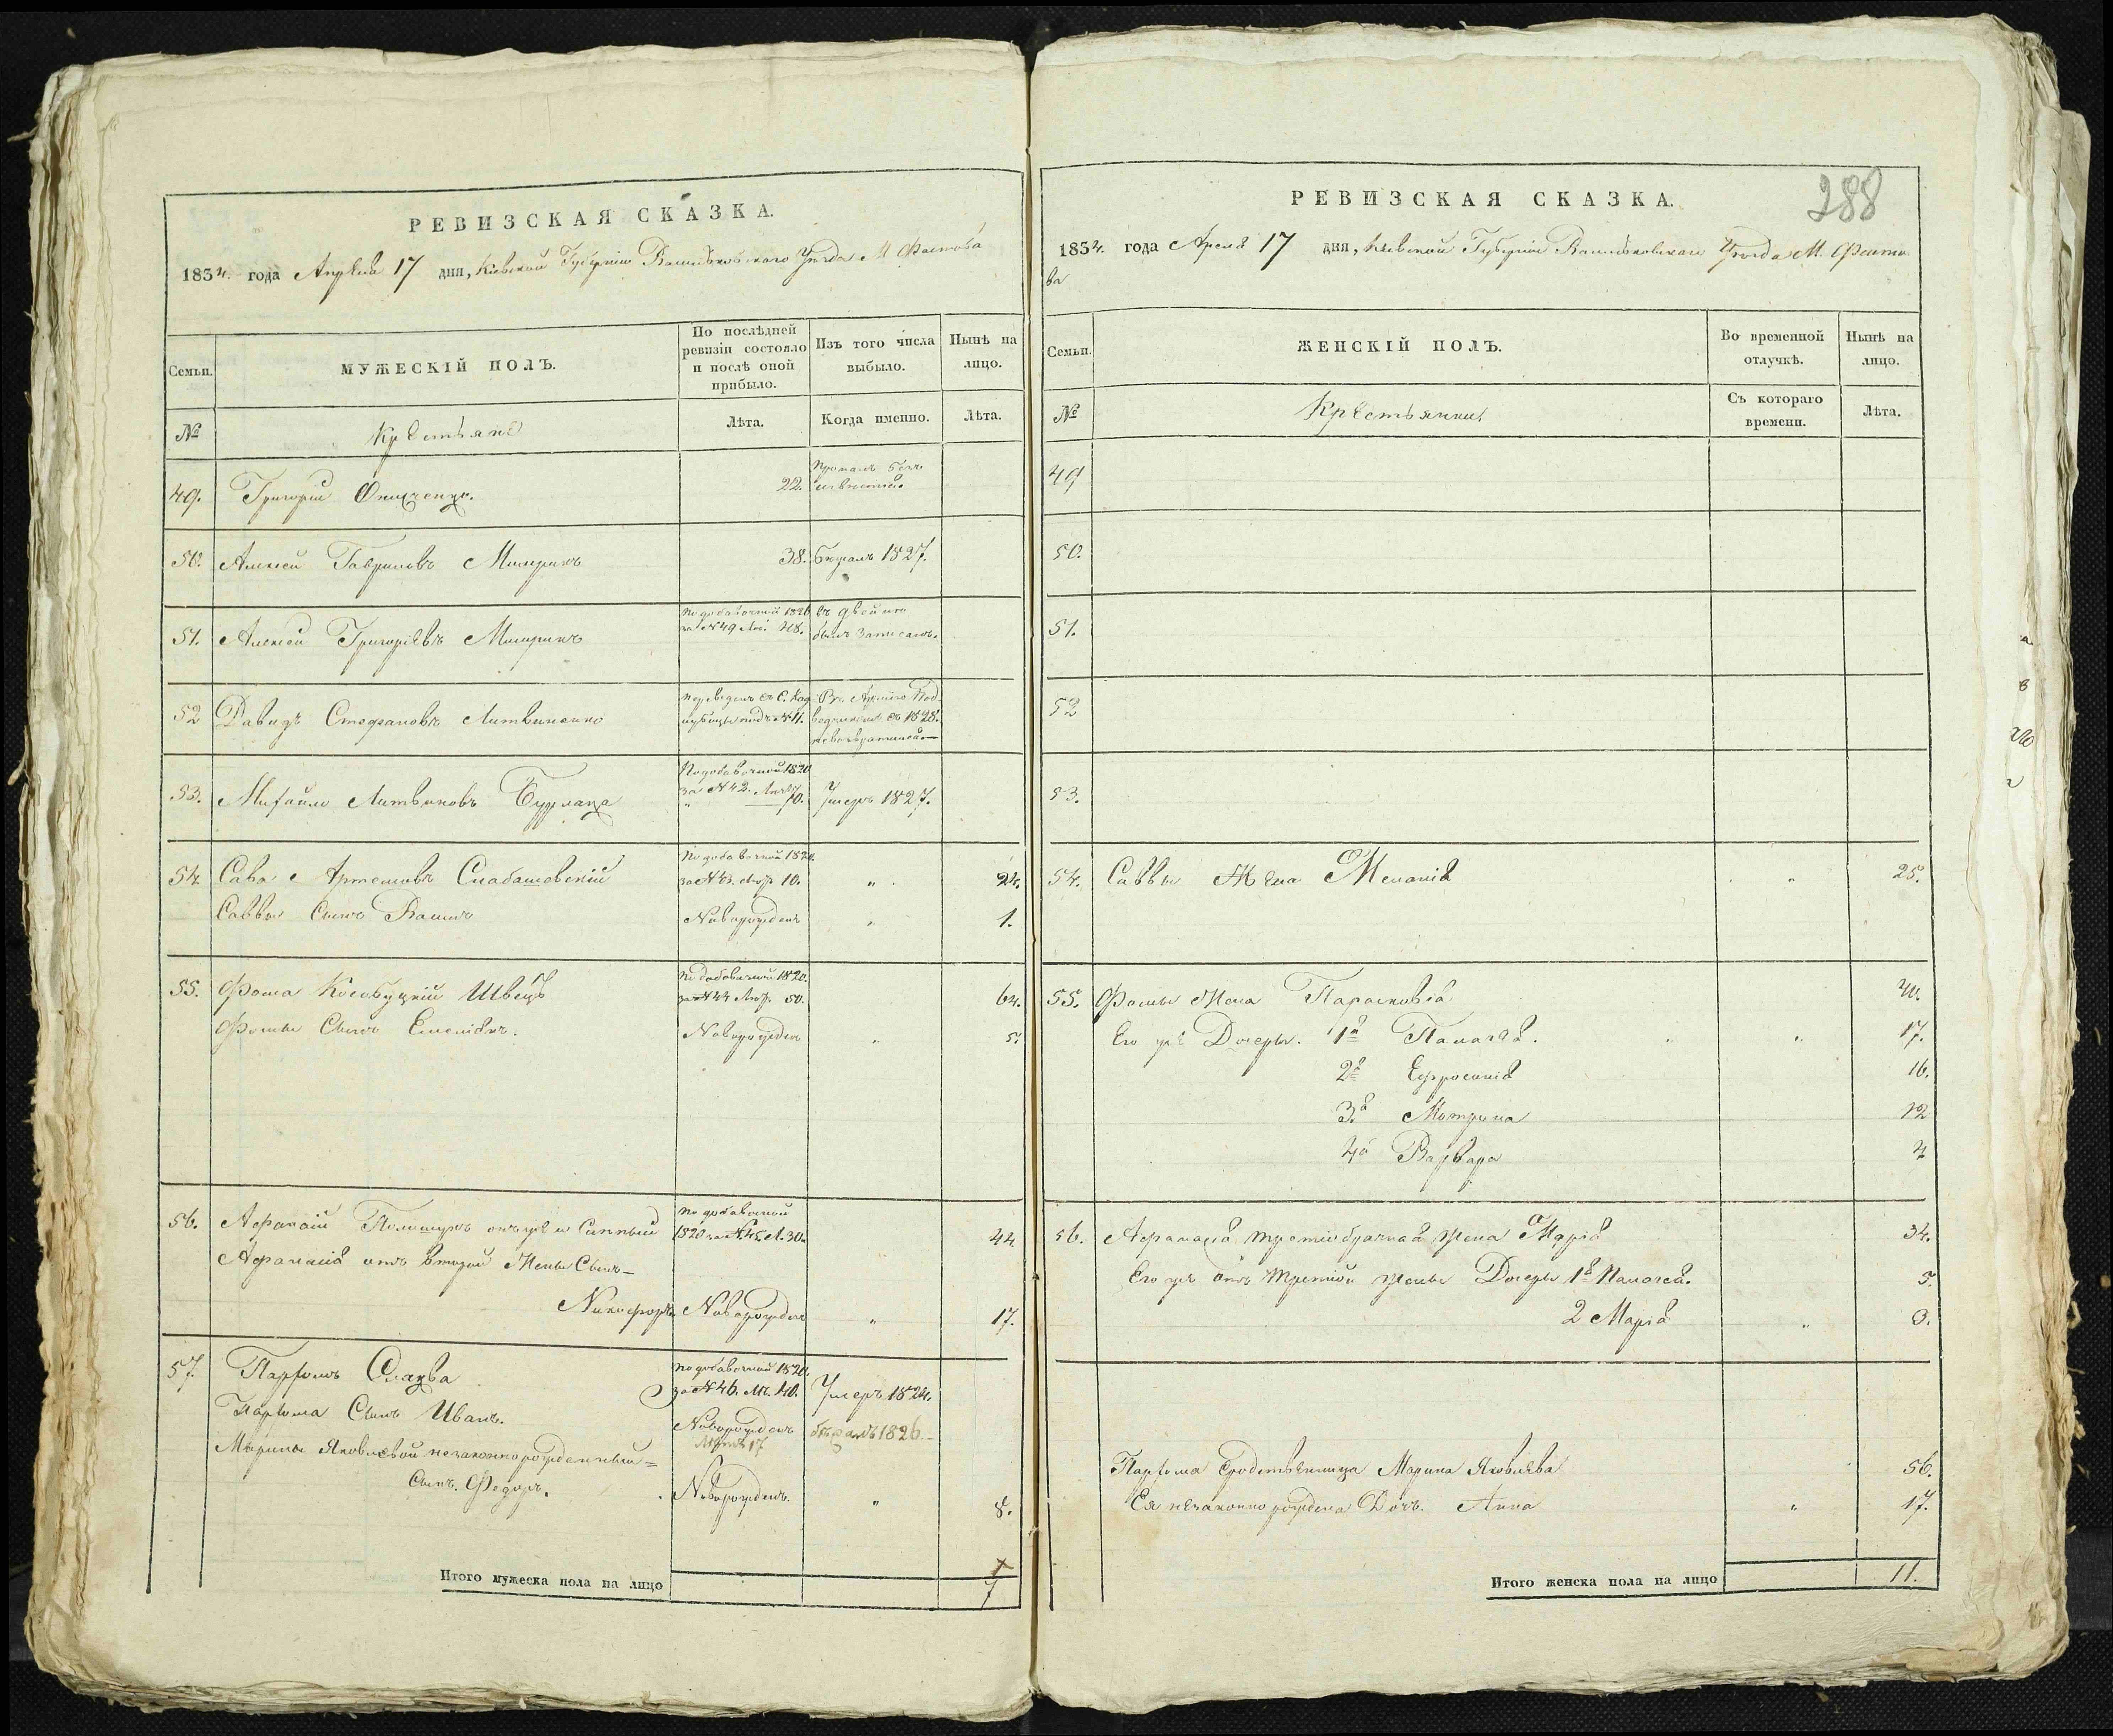 РЕВИЗСКАЯ СКАЗКА.
1834. года Апреля 17 дня, Кіевской Губерніи Васильковскаго Уезда М. Фастова
Семьи.
МУЖЕСКІЙ ПОЛЪ.
По послѣдней ревизіи состояло и послѣ оной прибыло.
Изъ того числа выбыло.
Нынѣ на лицо.
№
Крестьяне
Лѣта.
Когда именно.
Лѣта.
49. Григорій Онищенко. 22. Пропалъ безъ
известно.
50. Алексей Гавриловъ 38. Бежалъ 1827.
51. Алексей Григоріевъ По добавочной 1820 въ двойне
за №49 Лет. 28. былъ записанъ.
52 Давидъ Стефановъ Литвиненко Переведенъ съ С. Въ Армію
подъ №11. съ 1828.
невозвратился.
53. Михайло Литвиновъ Бурлака По добавочной 1820
за №42. Летъ 70. Умеръ 1827.
54. Сава Артемовъ Слабашовскій По добавочной 1820.
за №43. Летъ 10. " 24.
Саввы Сынъ Новорожденъ " 1.
55. Фома Кособуцкій Швецъ По добавочной 1820.
за №44 Летъ 50. 64.
Фомы Сынъ Емеліянъ. Новорожденъ " 5.
56. Афанасій онъ же и По добавочной
1820 за №45. Л. 30. 44.
Афанасія отъ второй Жены Сынъ
Никифоръ Новорожденъ " 17.
57. Парфомъ По добавочной 1820.
за №46. Лѣ. 40. Умеръ 1824.
Парфома Сынъ Иванъ. Новорожденъ бежалъ 1826.
Летъ 17
Марины Яковлевой незаконнорожденный
Сынъ. Федоръ. Новорожденъ. " 8.
Итого мужеска пола на лицо 7
288
РЕВИЗСКАЯ СКАЗКА.
1834. года Апреля 17 дня, Кіевской Губерніи Васильковскаго Уезда М. Фасто
ва
Семьи.
ЖЕНСКІЙ ПОЛЪ.
Во временной отлучкѣ.
Нынѣ на лицо.
№
Крестьянки
Съ котораго времени.
Лѣта.
49
50.
51.
52
53.
54. Саввы Жена Меланія " 25.
55. Фомы Жена Парасковія 40.
Его же Дочеры. 1я Палагея. " 17.
2я Ефросинія 16.
3я Мотрина 12
4я Варвара 4
56. Афанасія третiобрачная жена Марія 34.
Его же отъ третіой жены Дочеры 1я Палагея. 5.
2 Марія " 3.
Парфома сродственница Марина Яковлева 56.
Ея незаконно рождена Дочь. Анна " 17.
Итого женска пола на лицо 11.